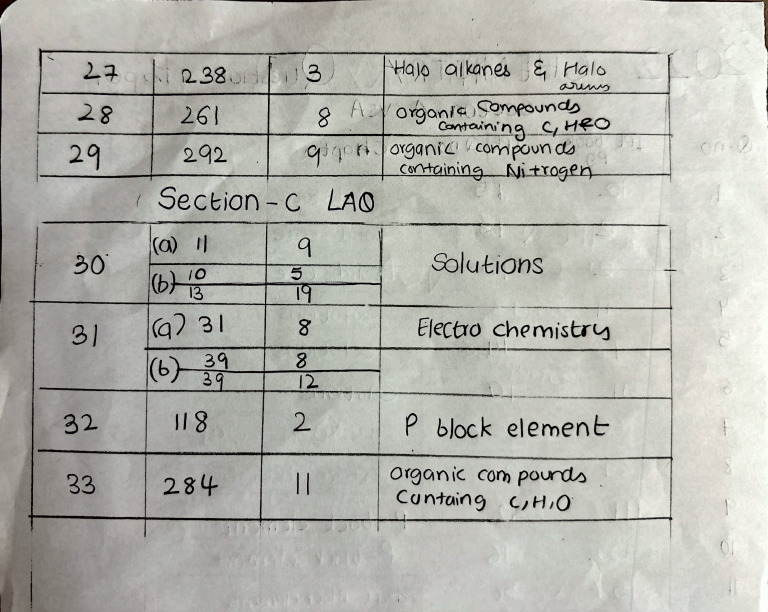 27 238 3 Halo alkanes & Halo
arens
28 261 8 organic compounds
containing C, H&O
29 292 9 organic compounds
containing Nitrogen
Section - C LAQ
30 (a) 11 9 Solutions
(b) 10 5
13 19
31 (a) 31 8 Electro chemistry
(b) 39 8
39 12
32 118 2 P block element
33 284 11 organic compounds
Containg C,H,O